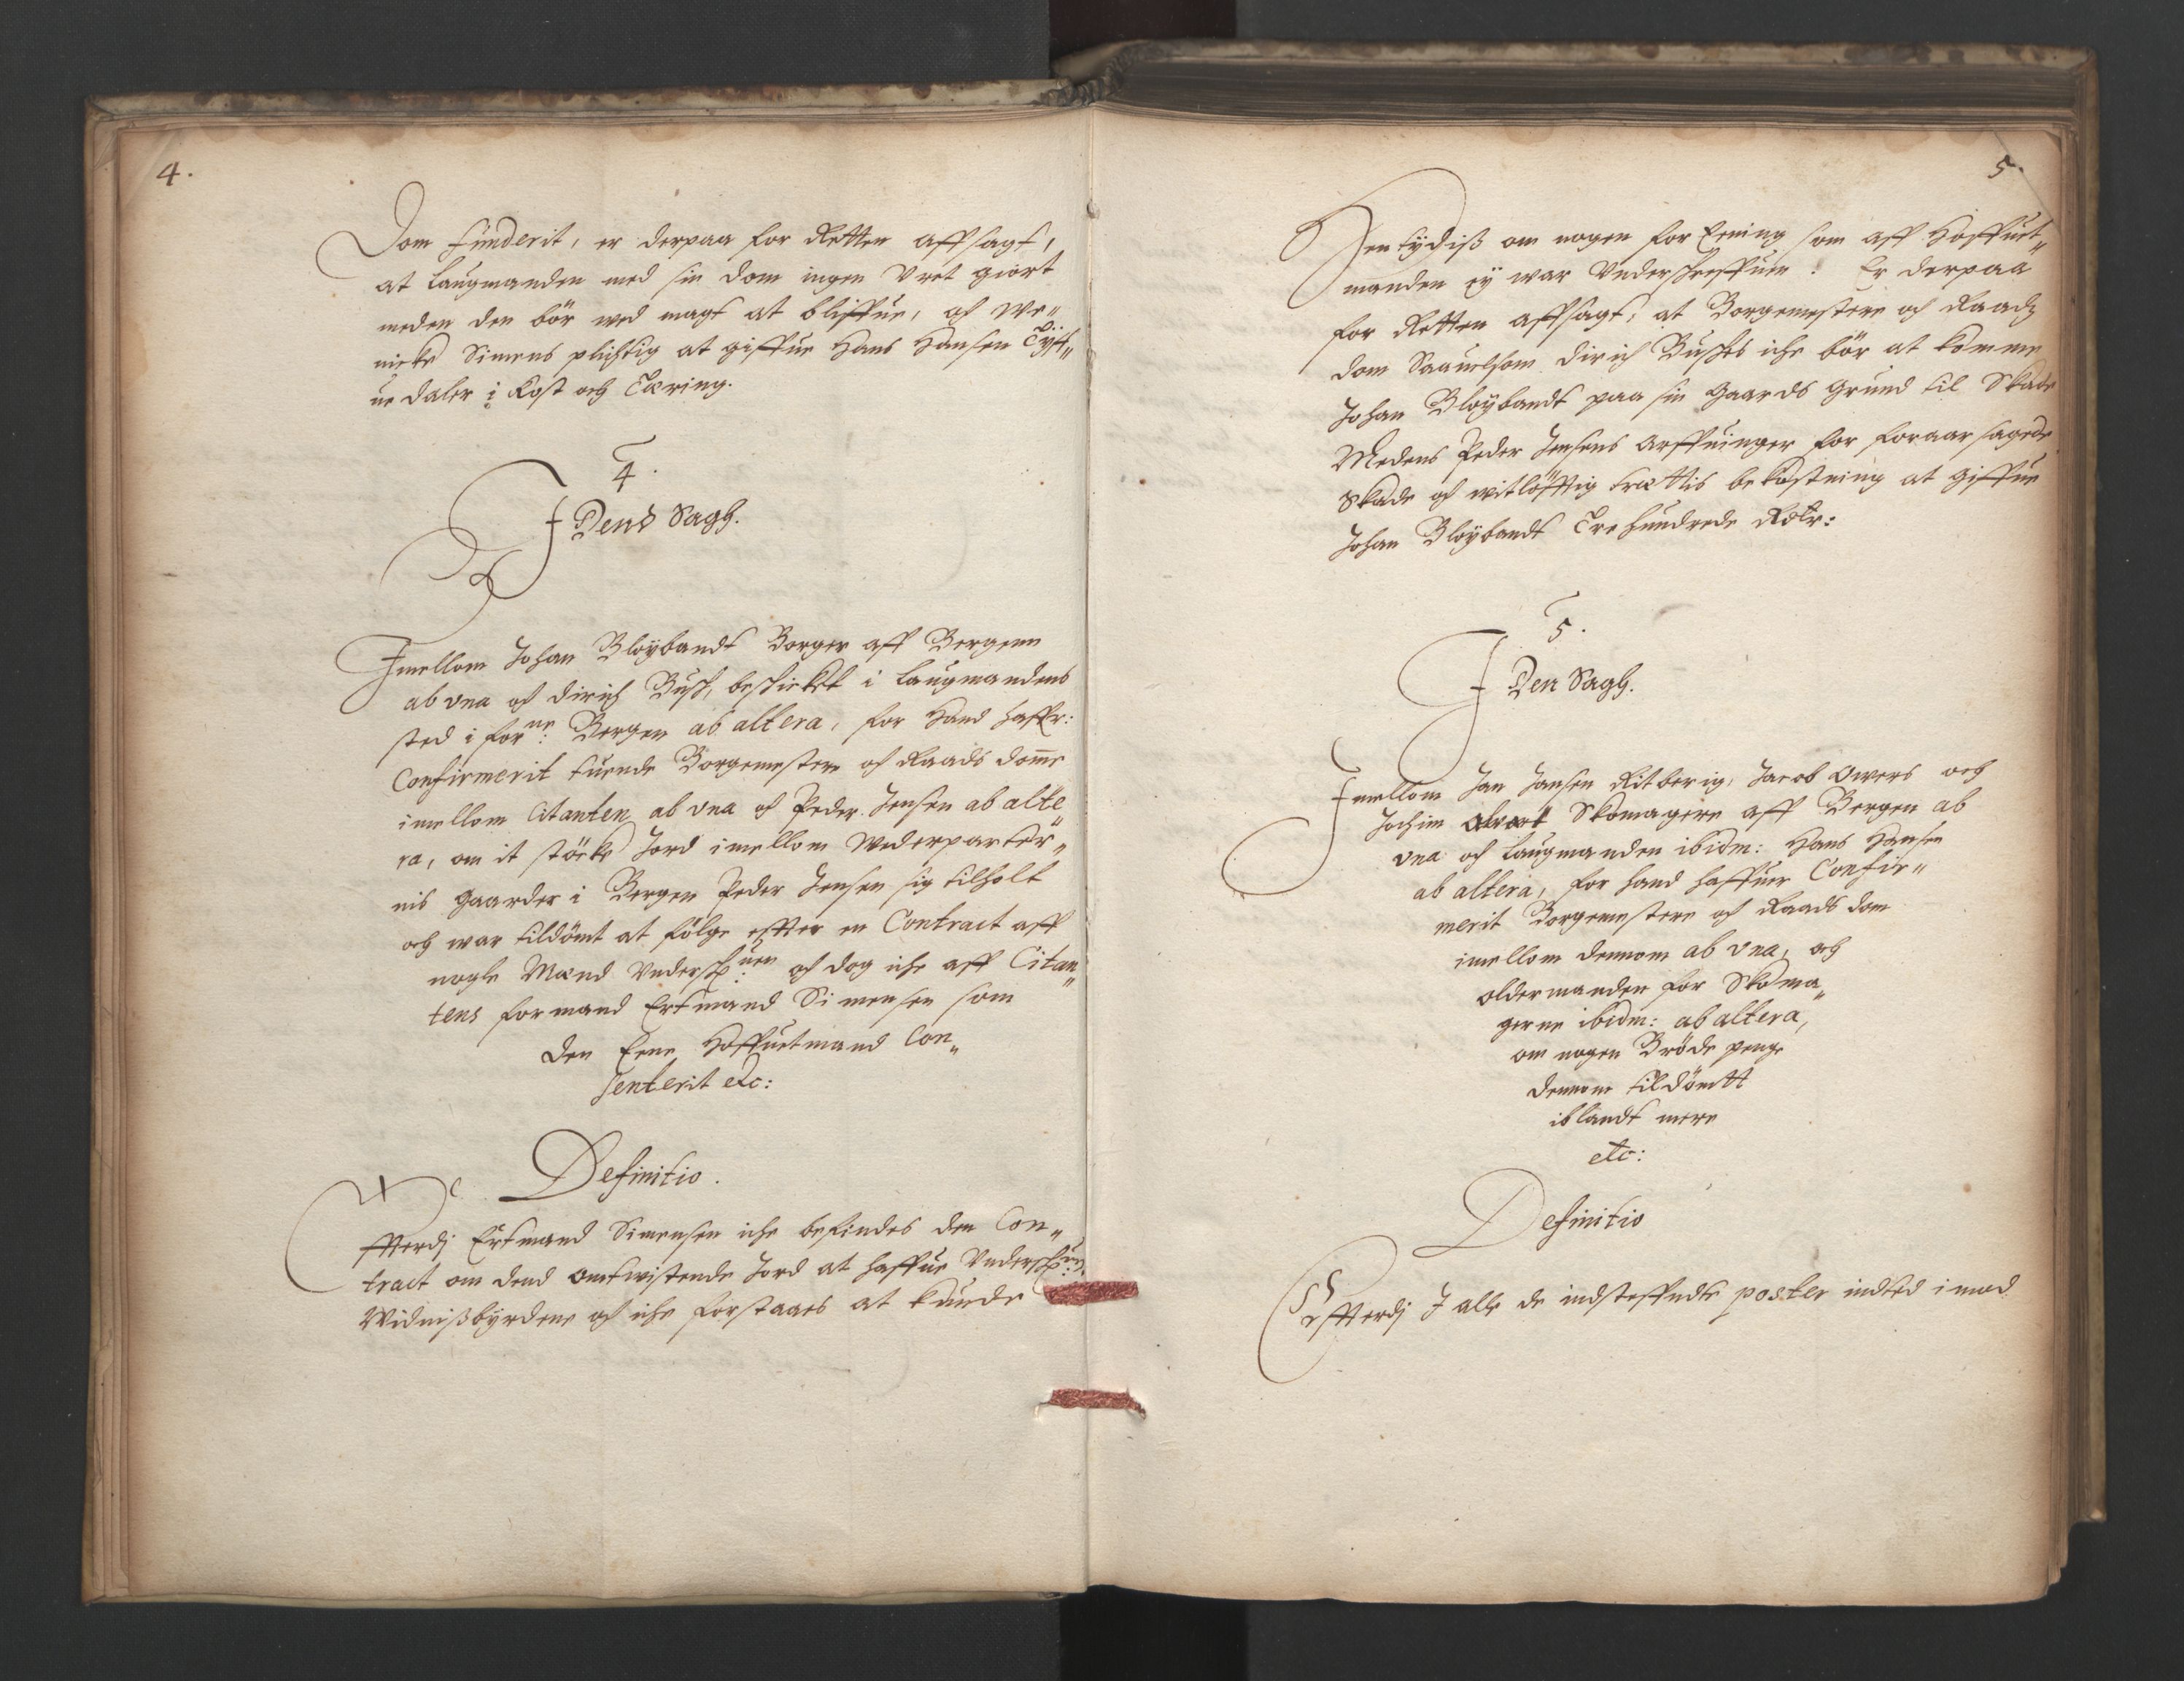 4.
Dom funderit, er derpaa for Retten affsagt,
at Laugmanden med sin dom ingen Vret giort
meden den bör wed magt at bliffue, och We„
nicke Simens plichtig at giffue Hans Hansen Tyf„
ue daler i Kost och Tæring.
4.
I Dend Sagh.
Imellom Johan Bloÿbandt Borger aff Bergenn
ab vna och Dirich Busch, beschicket i Laugmandens
sted i forne: Bergen ab altera, for Hand haffr:
Confirmerit tuende Borgemestere och Raads domme
imellom Citanten ab vna och Peder Jensen ab alte„
ra, om it støcke Jord imellom Wederparter„
nis gaarder i Bergen Peder Jensen sig tilholt
och war tildömt at følge effter en Contract aff
nogle Mænd Vnderschreffuen och dog iche aff Citan„
tens formand Ertmand Simensen som
den Eene Hoffuetmand Con„
senterit etc:
Definitio.
Effterdj Ertmand Simensen iche befindes den Con„
tract om dend omtwistende Jord at haffue Vnderschr:
Widnißbyrdene och iche forstaaes at kunde
5.
Gentÿdiß om nogen for Eening som aff Hoffuet„
manden eÿ war Vnderschreffuen: Er derpaa
for Retten affsagt, at Borgemestere och Raadz
dom Saauelsom Dirich Busches iche bör at komme
Johan Bloÿbandt paa sin Gaards Grund til Skade
Medens Peder Jensens Arffuinger for foraarsagede
Skade och witlöfftig trættis bekostning at giffue
Johan Bloÿbandt Trehundrede Rdlr:
5.
I Den Sagh.
Imellom Jan Jansen Ritberig, Jacob Owers och
Jochim Alvort Skomagere aff Bergen ab
vna och Laugmanden ibidm: Hans Hansen
ab altera, for hand haffuer Confir„
merit Borgemestere och Raads dom
imellom dennom ab vna, och
oldermanden for Skoma„
gerne ibidm: ab altera,
om nogen Bröde penge
dennom tildömtt
iblandt mere
etc:
Definitio
Effterdj I alle de indsteffnede poster indted imod